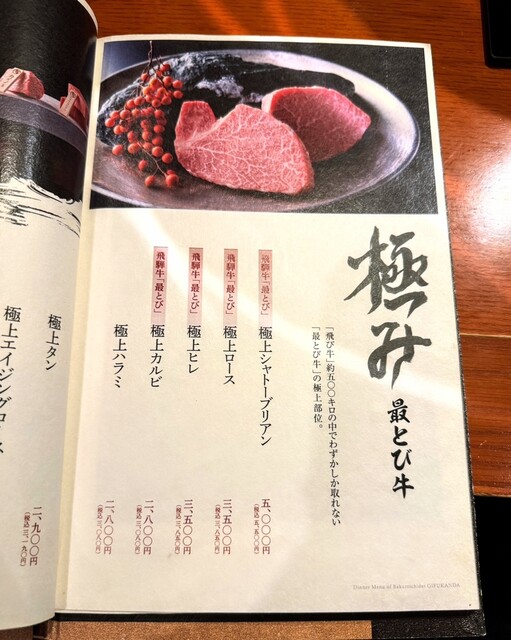 極み
最とび牛
「飛び牛」約五〇〇キロの中でわずかしか取れない
「最とび牛」の極上部位。
飛騨牛「最とび」 極上シャトーブリアン 五、〇〇〇円
（税込 五、五〇〇円）
飛騨牛「最とび」 極上ロース 三、五〇〇円
（税込 三、八五〇円）
飛騨牛「最とび」 極上ヒレ 三、五〇〇円
（税込 三、八五〇円）
飛騨牛「最とび」 極上カルビ 二、八〇〇円
（税込 三、〇八〇円）
極上ハラミ 二、八〇〇円
（税込 三、〇八〇円）
極上タン 二、九〇〇円
（税込 三、一九〇円）
極上エイジング
Dinner Menu of